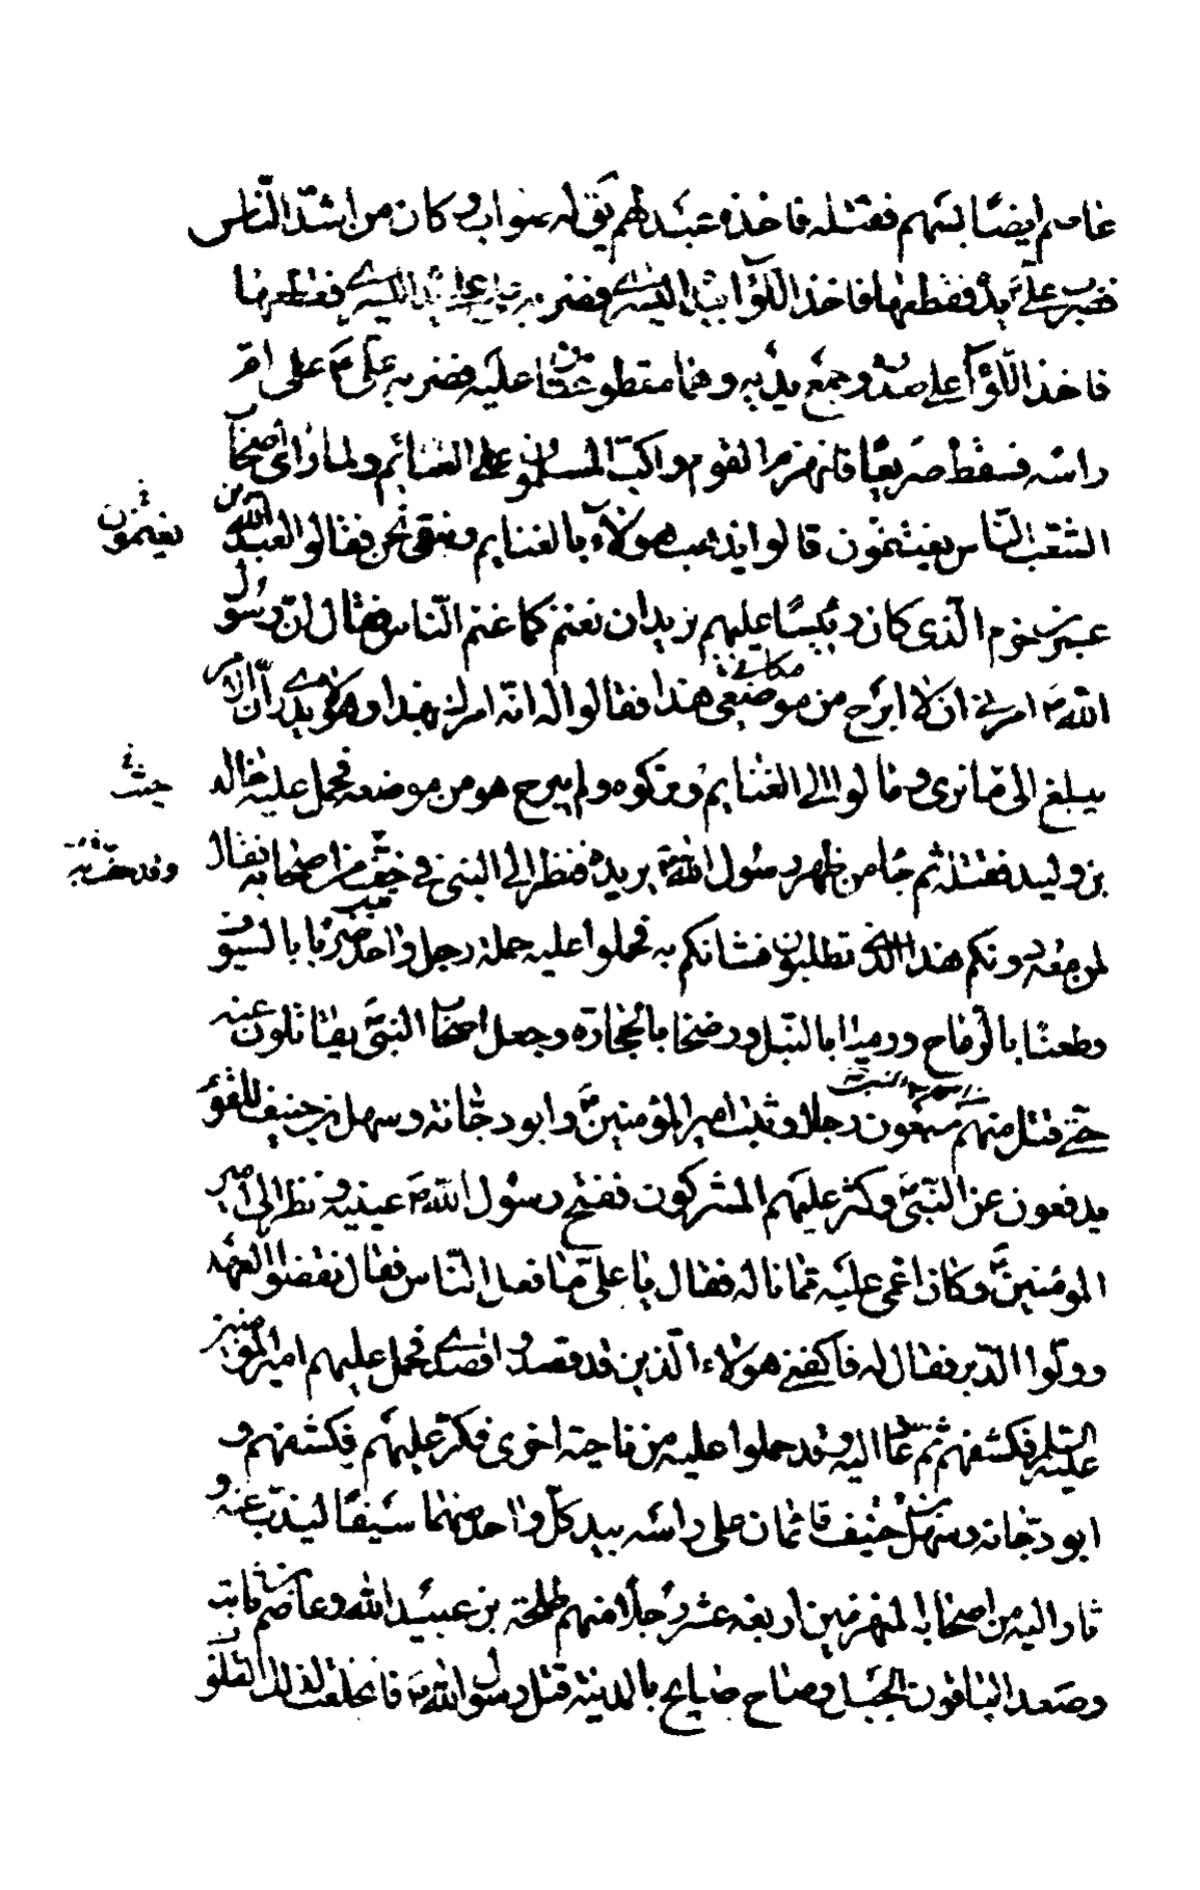 عاصم ايضًا بسهم فقتله فاخذه عبد لهم يق له صواب وكان من اشدّ النّاس
فضرب عليّ يده فقطعها فاخذ اللّوآ بيده اليسرى فضرب عليّ يده اليسرى فقطعها
فاخذ اللّوآ على صدره وجمع يديه وهما مقطوعتان عليه فضربه عليّ ع على امّ
راسه فسقط صريعًا فانهزم القوم واكبّ المسلمون على الغنايم ولما راى اصحاب
الشّعب النّاس يغتنمون قالوا يذهب هولآء بالغنايم ونبقى نحن فقالوا لعبد الله بن
يغنمون
عمرو بن حزم الّذى كان رئيسًا عليهم نريد ان نغنم كما غنم النّاس فقال انّ رسول
الله ص امرنى ان لا ابرح من موضعى هذا فقالوا له انّه امرك بهذا وهو لا يدرى انّ الامر
مكانى
يبلغ الى ما ترى ومالوا الى الغنايم وتركوه ولم يبرح هو من موضعه فحمل عليه خالد
حيث
بن وليد فقتله ثم جآ من ظهر رسول الله ص يريده فنظر الى النبى فى خفّ من اصحابه فقال
وقد حفّ به
لمن معه دونكم هذا الذى تطلبون فشانكم به فحملوا عليه حملة رجل واحد ضربًا بالسيوف
وطعنًا بالرّماح ورميًا بالنّبل ورضخًا بالحجارة وجعل اصحاب النبىّ يقاتلون عنه
حتّى قتل منهم سبعون رجلا وثبت امير المؤمنين ع وابو دجّانة وسهل بن حنيف للقوم
يدفعون عن النّبىّ وكثر عليهم المشركون ففتح رسول الله ص عينيه ونظر الى امير
المومنين ع وكان اغمى عليه ممّا ناله فقال يا علىّ ما فعل النّاس فقال نقضوا العهد
وولّوا الدّبر فقال له فاكفنى هولاء الّذين قد قصدوا قصدى فحمل عليهم امير المومنين
عليه السّلم فكشفهم ثم عاد اليه وقد حملوا عليه من ناحية اخرى فكرّ عليهم فكشفهم و
ابو دجّانه وسهل بن حنيف قائمان على راسه بيد كلّ واحد منهما سيفًا ليذبّ عنه و
ثار اليه من اصحابه المنهزمين اربعة عشر رجلًا منهم طلحة بن عبيد الله وعاصم بن ثابت
وصعد الباقون الجبل وصاح صايح بالمدينة قتل رسول الله ص فانخلعت لذلك القلوب